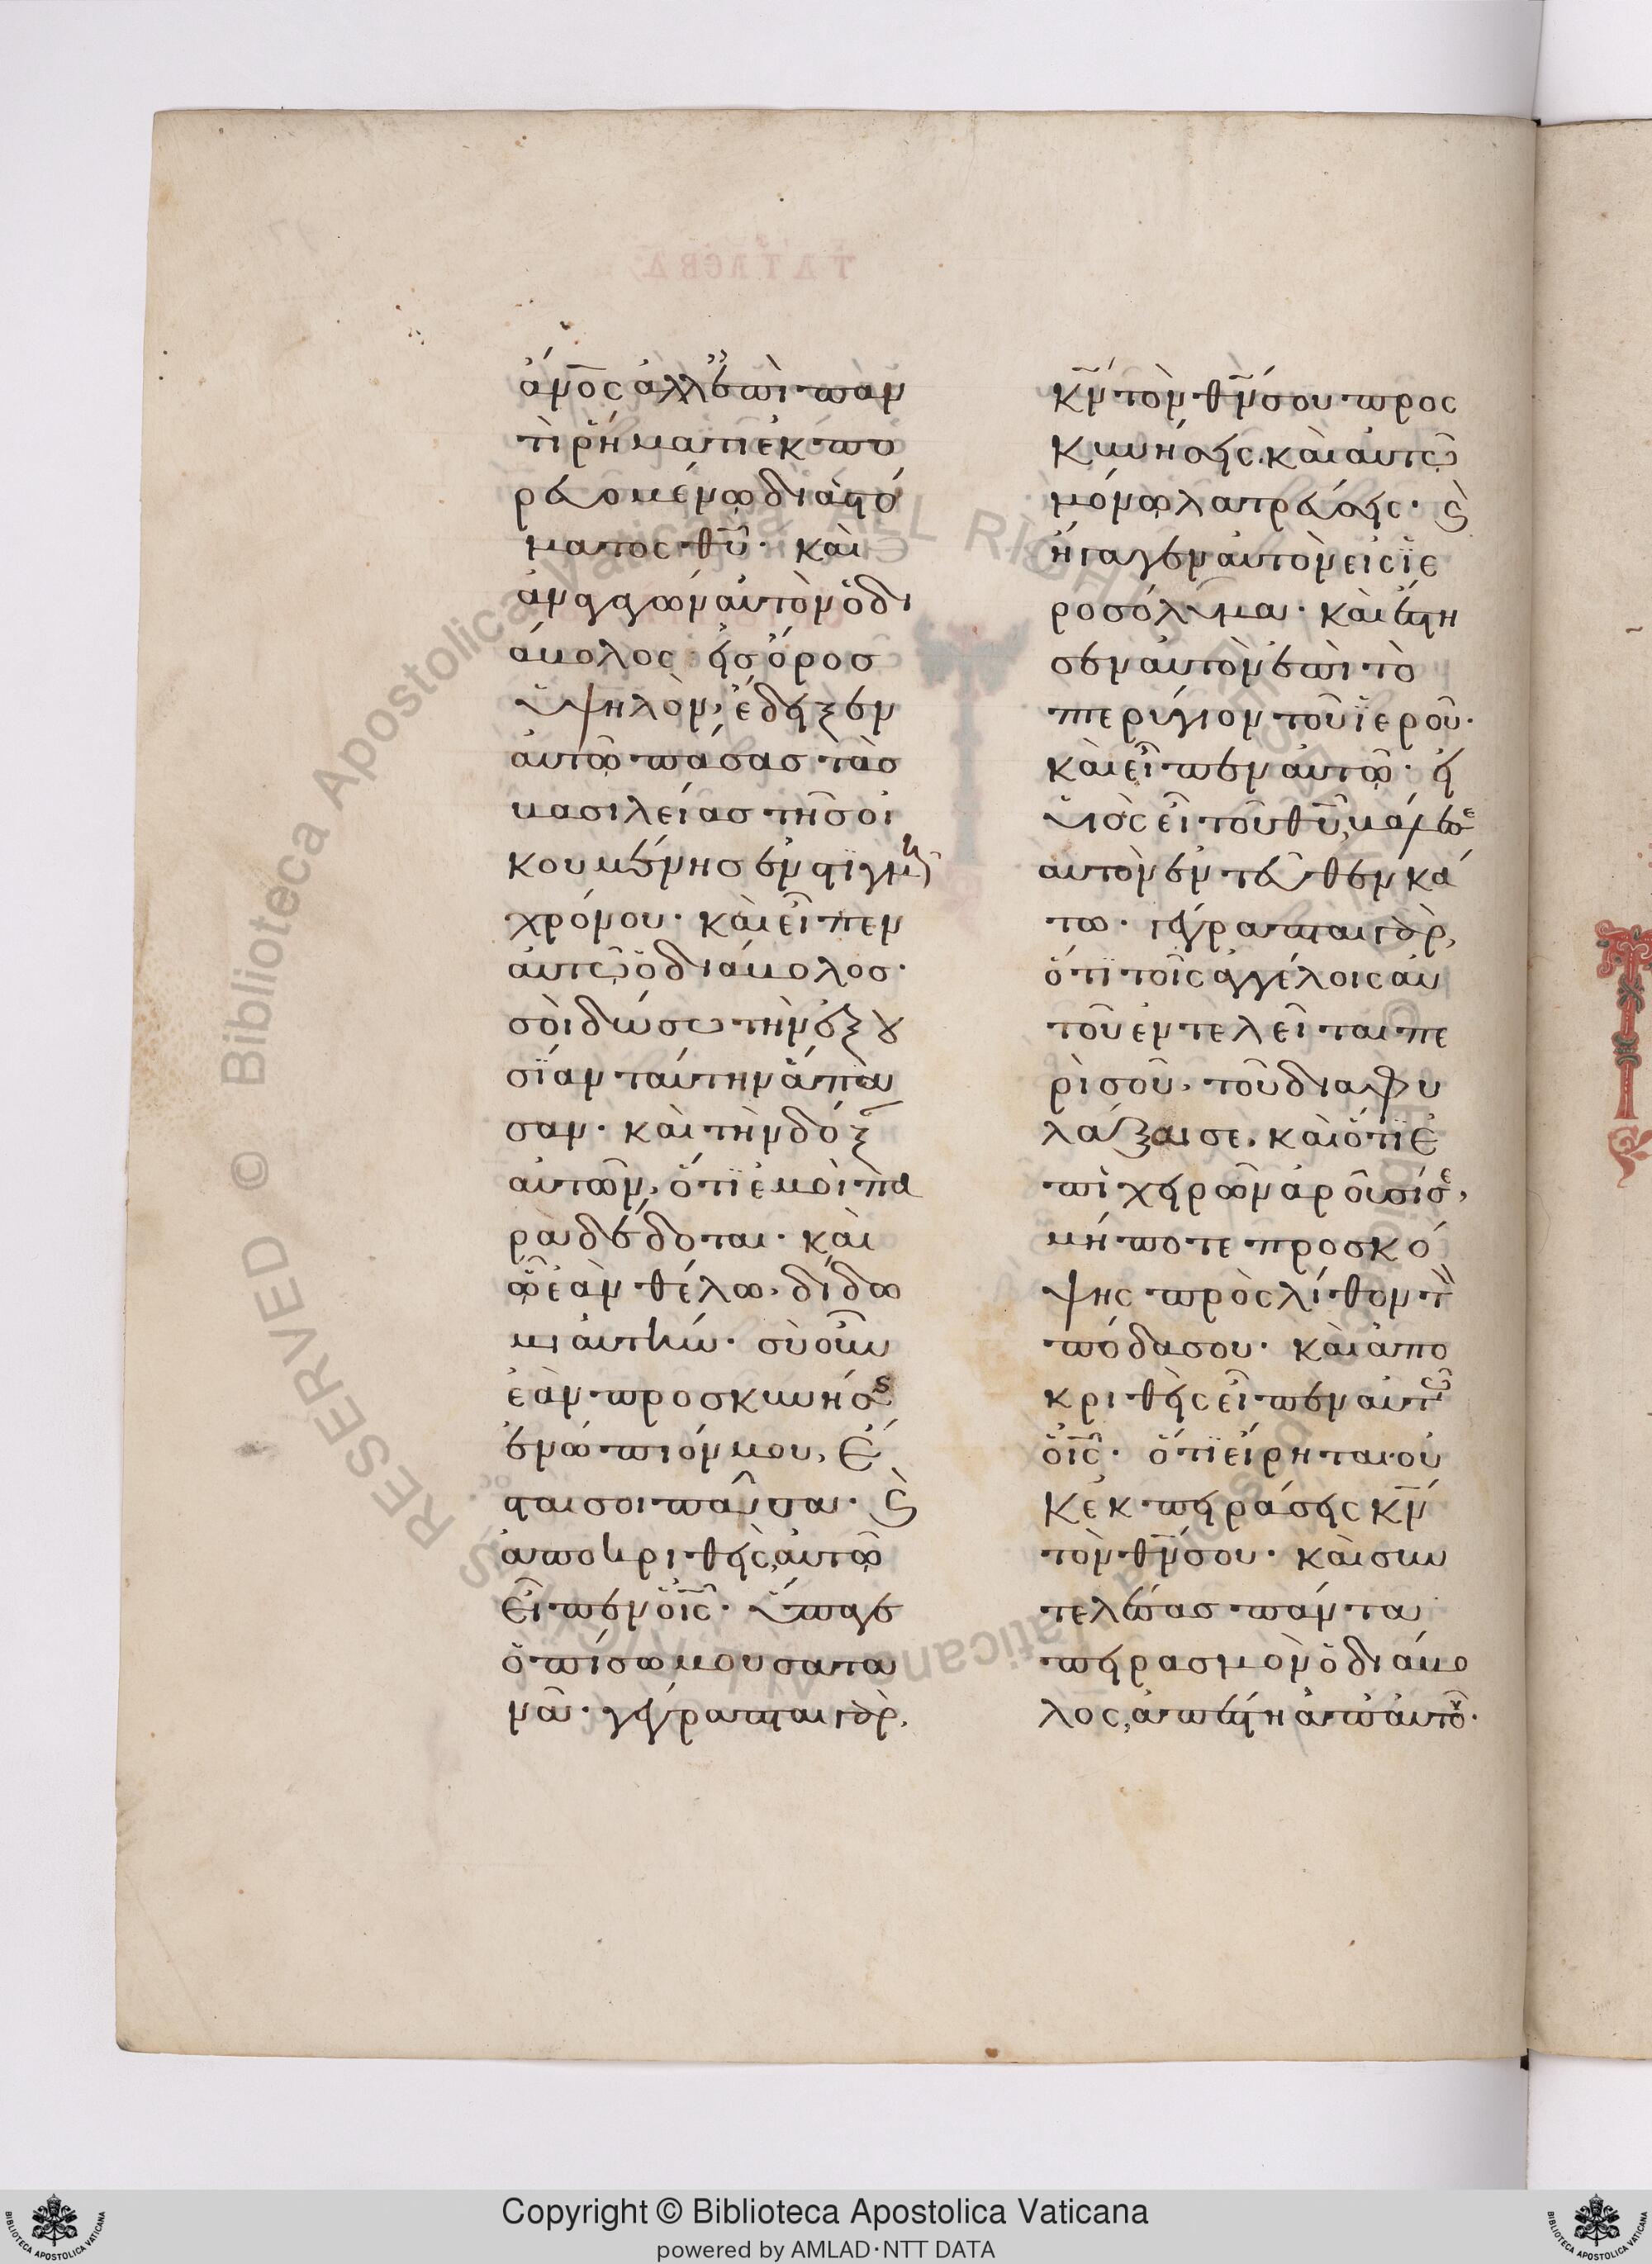 ἄνο̅ς ἀλλ' ἐπὶ παν
τὶ ῥήματι ἐκπο
ρευομένω διὰ στό
ματος θυ̅· καὶ
ἀναγαγὼν αὐτὸν ὁ δι
άβολος εἰς ὄρος
ὑψηλὸν, ἔδειξεν
αὐτῶ πάσας τὰς
βασιλείας τῆς οἰ
κουμένης ἐν στιγμῆ
χρόνου· καὶ εἶπεν
αὐτῶ ὁ διάβολος·
σοὶ δώσω τὴν ἐξου
σίαν ταύτην ἅπα
σαν· καὶ τὴν δόξ
αὐτῶν, ὅτι ἐμοὶ πα
ραδέδοται· καὶ
ὧ ἐὰν θέλω, δίδω
μι αὐτήν· σὺ οὖν
ἐὰν προσκυνήσῃς
ἐνώπιόν μου, ἔ
σται σοι πᾶσα· ϗ
ἀποκριθεὶς αὐτῶ
εἶπεν ὁ ις̅· ὕπαγε
ὀπίσω μου σατα
νᾶ· γέγραπται γὰρ,
κν̅ τὸν θν̅ σου προσ
κυνήσεις. καὶ αὐτῶ
μόνω λατρεύσεις· ϗ
ἤγαγεν αὐτὸν εἰς ἱε
ροσόλυμα· καὶ ἔστη
σεν αὐτὸν ἐπὶ τὸ
πτερύγιον τοῦ ἱεροῦ·
καὶ εἶπεν αὐτῶ· εἰ
υἱὸς εἶ τοῦ θυ̅, βάλε σε
αυτὸν ἐντεῦθεν κά
τω· γέγραπται γὰρ,
ὅτι τοῖς ἀγγέλοις αὐ
τοῦ ἐντελεῖται πε
ρὶ σοῦ, τοῦ διαφυ
λάξαι σε. καὶ ὅτι ἐ
πὶ χειρῶν ἀροῦσί σε,
μήποτε προσκό
ψης πρὸς λίθον τὸν
πόδα σου· καὶ ἀπο
κριθεὶς εἶπεν αὐτῶ
ὁ ις̅· ὅτι εἴρηται· οὐ
κ ἐκπειράσεις κν̅
τὸν θν̅ σου· καὶ συν
τελέσας πάντα
πειρασμὸν ὁ διάβο
λος, ἀπέστη ἀπ' αὐτοῦ·
Copyright © Biblioteca Apostolica Vaticana
powered by AMLAD·NTT DATA